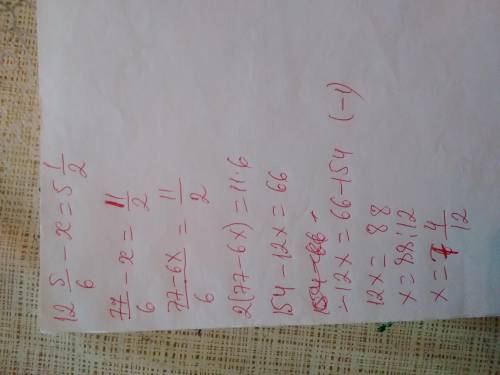 12 5/6 - x = 5 1/2
77/6 - x = 11/2
77-6x/6 = 11/2
2(77-6x) = 11·6
154-12x = 66
-12x = 66-154 (-1)
12x = 88
x = 88:12
x = 7 4/12